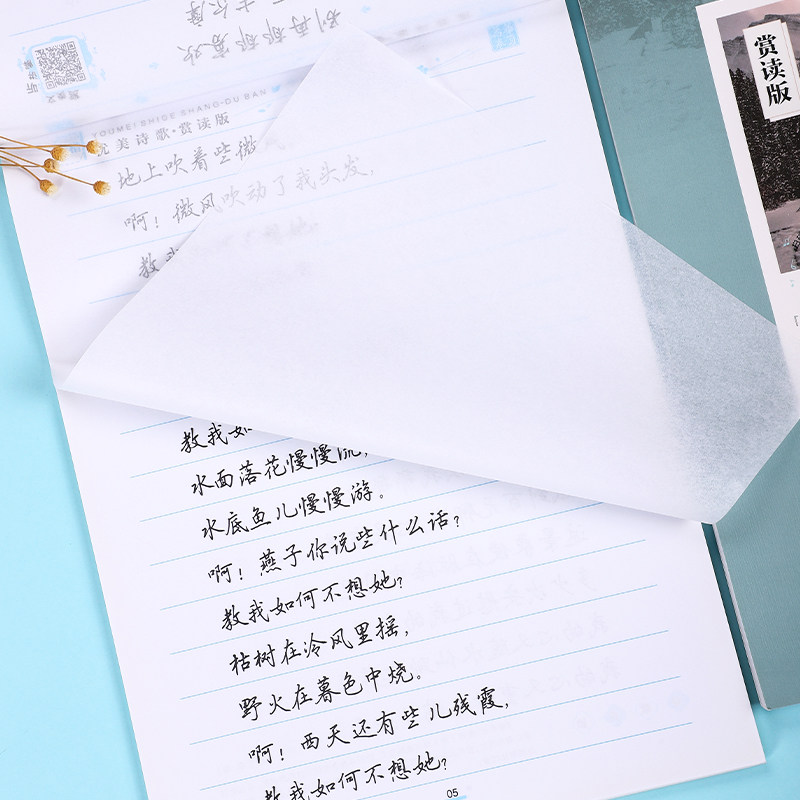 YOUMEI SHIGE SHANG·DU BAN
优美诗歌·赏读版
地上吹着些微
啊！微风吹动了我头发，
教
教我如
水面落花慢慢流，
水底鱼儿慢慢游。
啊！燕子你说些什么话？
教我如何不想她？
枯树在冷风里摇，
野火在暮色中烧。
啊！西天还有些儿残霞，
教我如何不想她？
05
赏读版